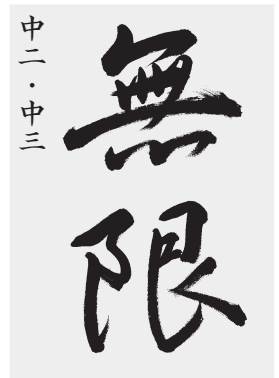 無限
中二・中三